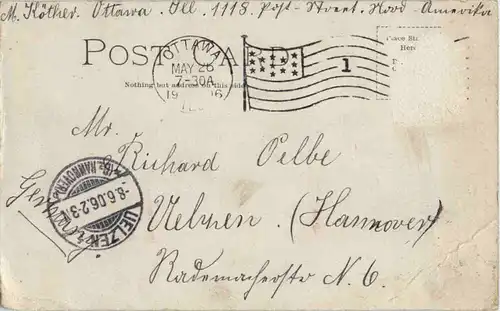 M. Köther. Ottawa. Ill. 1118. Post-Street. Nord-Amerika
POST CARD
Nothing but address on this side
OTTAWA
MAY 26
7-30A
1
Place
Here
Mr.
Richard Oelbe
Uelzen. (Hannover)
Germany
UELZEN
-8.6.06.2-3
* (BZ. HANNOVER)
Rademacherstr N. 6.